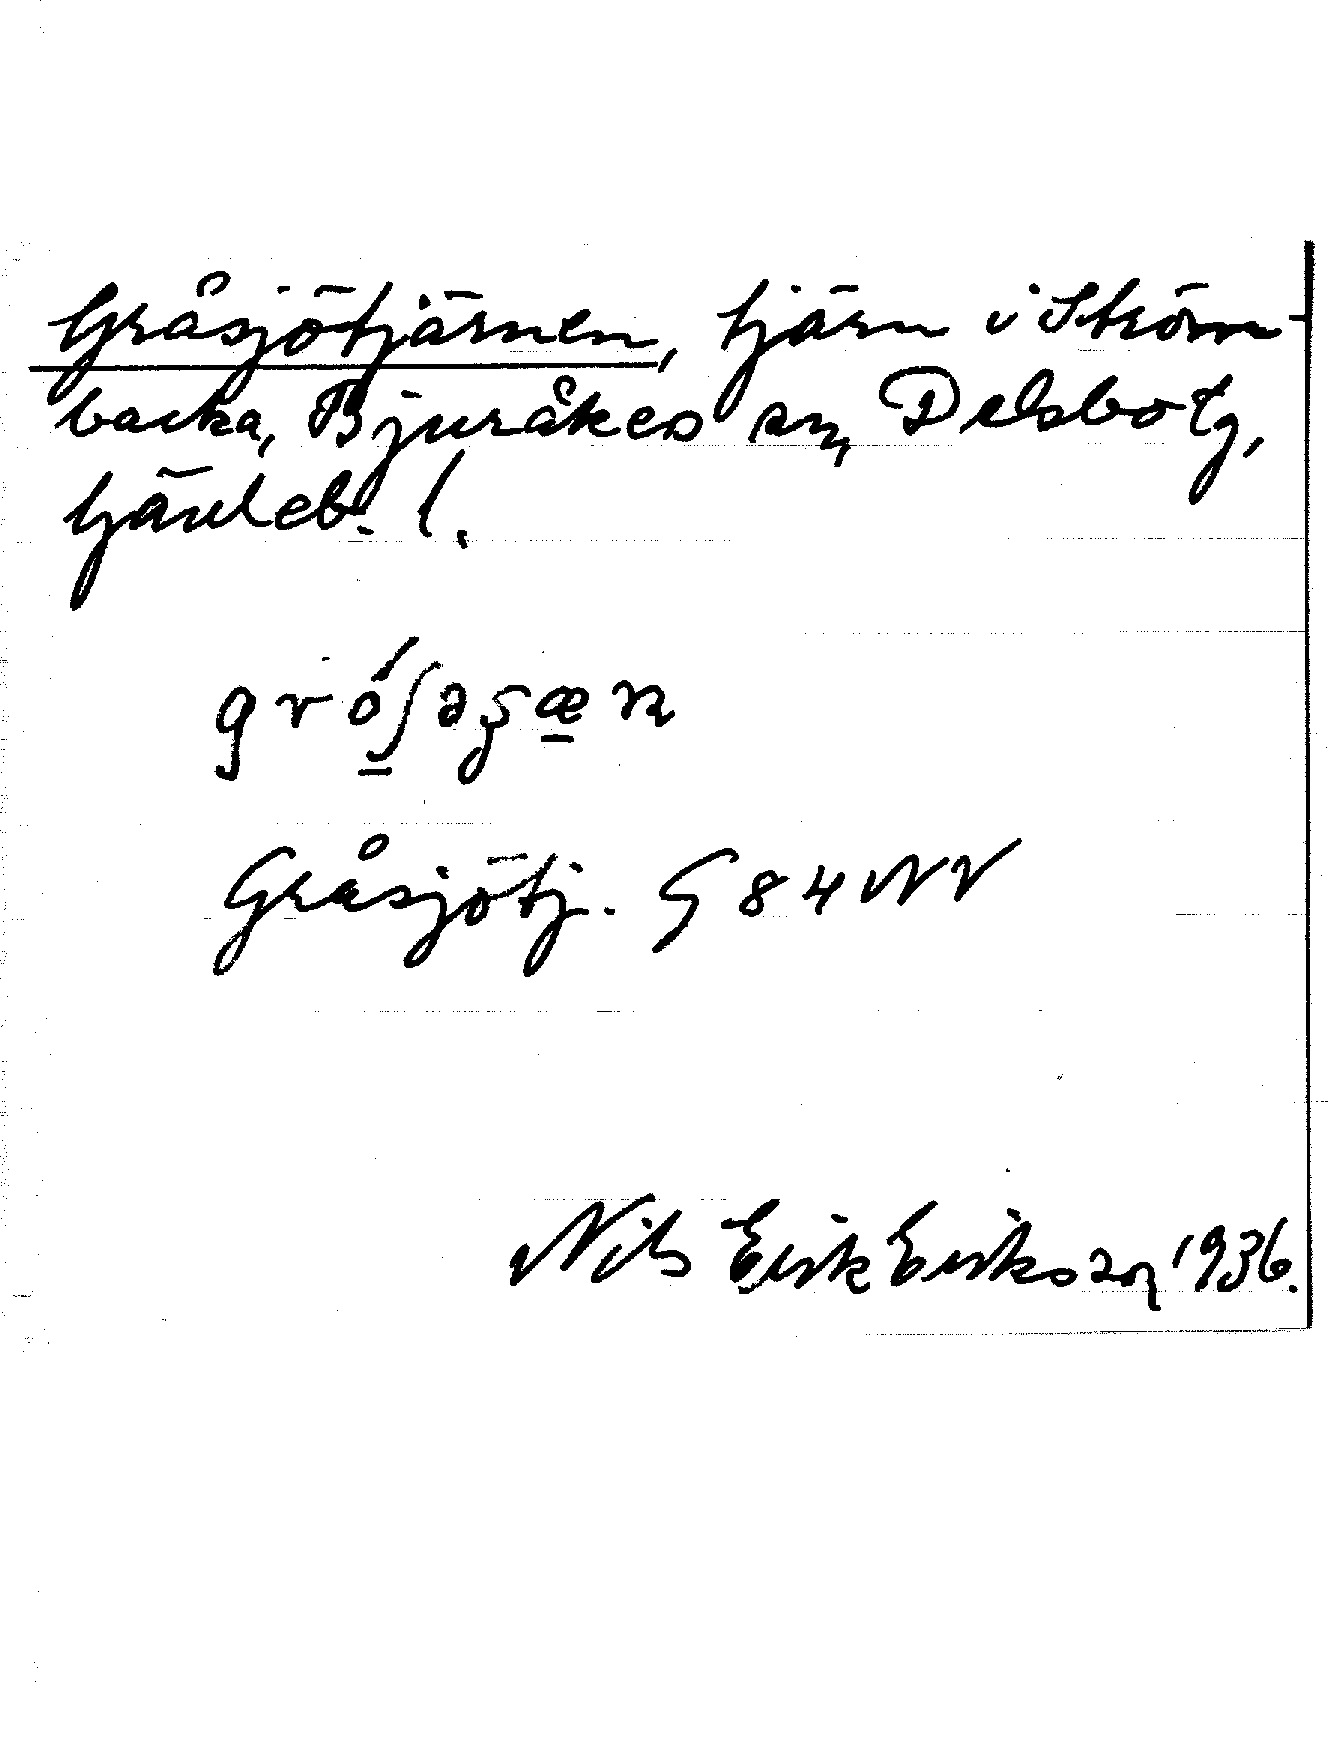 Gråsjötjärnen, tjärn i Ström-
backa, Bjuråkers sn, Delsbo tg,
Gävleb. l.
Gråsjötj. G 84 NV
Nils Erik Eriksson 1936.